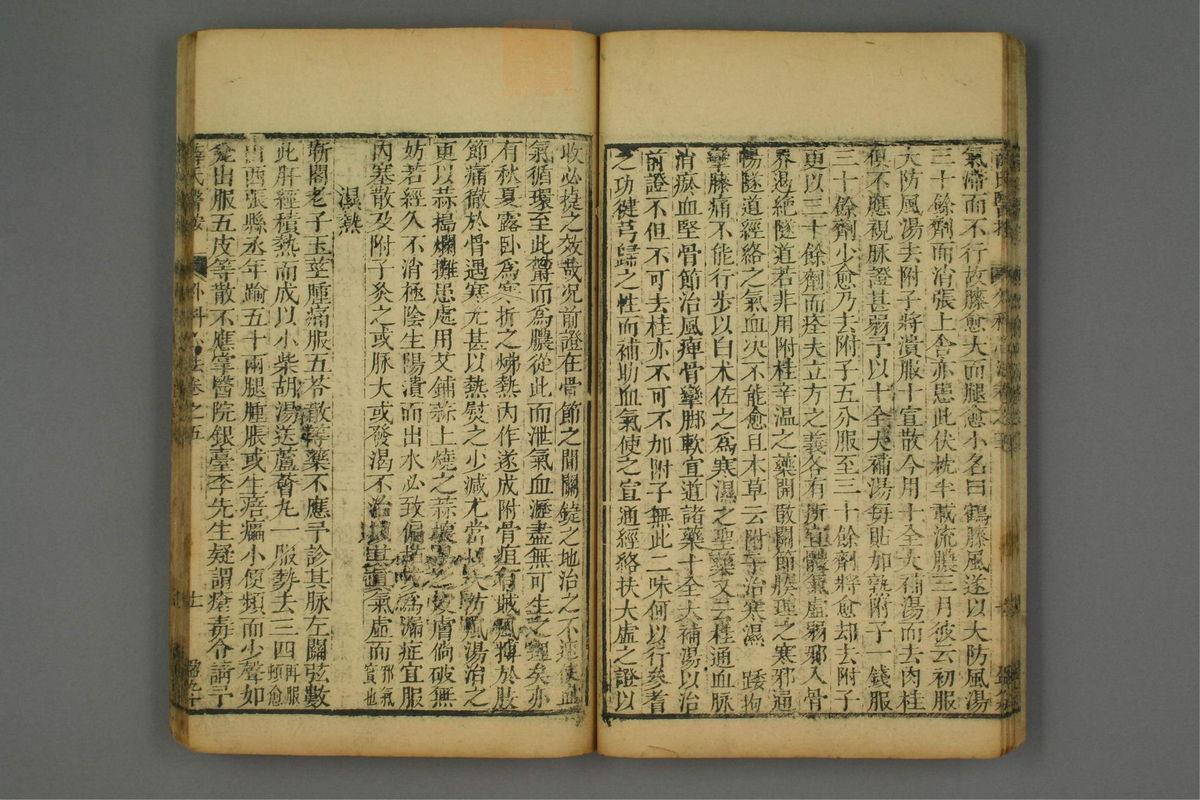 氣滯而不行故膝愈大而腿愈小名曰鶴膝風遂以大防風湯
三十餘劑而消張上舍亦患此伏枕半載流膿三月彼云初服
大防風湯去附子將潰服十宣散今用十全大補湯而去肉桂
俱不應視脈證甚弱予以十全大補湯每貼加熟附子一錢服
三十餘劑少愈乃去附子五分服至三十餘劑將愈却去附子
更以三十餘劑而痊夫立方之義各有所宜體氣虛弱邪入骨
界遏絶隧道若非用附桂辛溫之藥開散關節腠理之寒邪通
暢隧道經絡之氣血决不能愈且本草云附子治寒濕 踒拘
攣膝痛不能行步以白术佐之為寒濕之聖藥又云桂通血脉
消瘀血堅骨節治風痺骨攣脚軟宜道諸藥十全大補湯以治
前證不但不可去桂亦不可不加附子無此二味何以行參耆
之功健芎歸之性而補助血氣使之宣通經絡扶大虛之證以
收必捷之效哉况前證在骨節之間關鍵之地治之不速使血
氣循環至此欝而為膿從此而泄氣血瀝盡無可生之理矣亦
有秋夏露卧為寒折之㶼熱內作遂成附骨疽有賊風搏於肢
節痛徹於骨遇寒尤甚以熱熨之少减尤當以大防風湯治之
更以蒜搗爛攤患處用艾鋪蒜上燒之蒜壞易之皮膚倘破無
妨若經久不消極陰生陽潰而出水必致偏枯或為漏症宜服
內寒散及附子灸之或脉大或發渴不治 其真氣虛而邪氣實也
濕熱
靳閣老子玉莖腫痛服五苓散等藥不應予診其脉左關弦數
此肝經積熱而成以小柴胡湯送蘆薈丸一服勢去三四再服頓愈
山西張縣丞年踰五十兩腿腫脹或生㾦㿔小便頻而少聲如
甕出服五皮等散不應掌醫院銀臺李先生疑謂瘡毒令請予
薛氏醫按 外科心法卷之五 十一